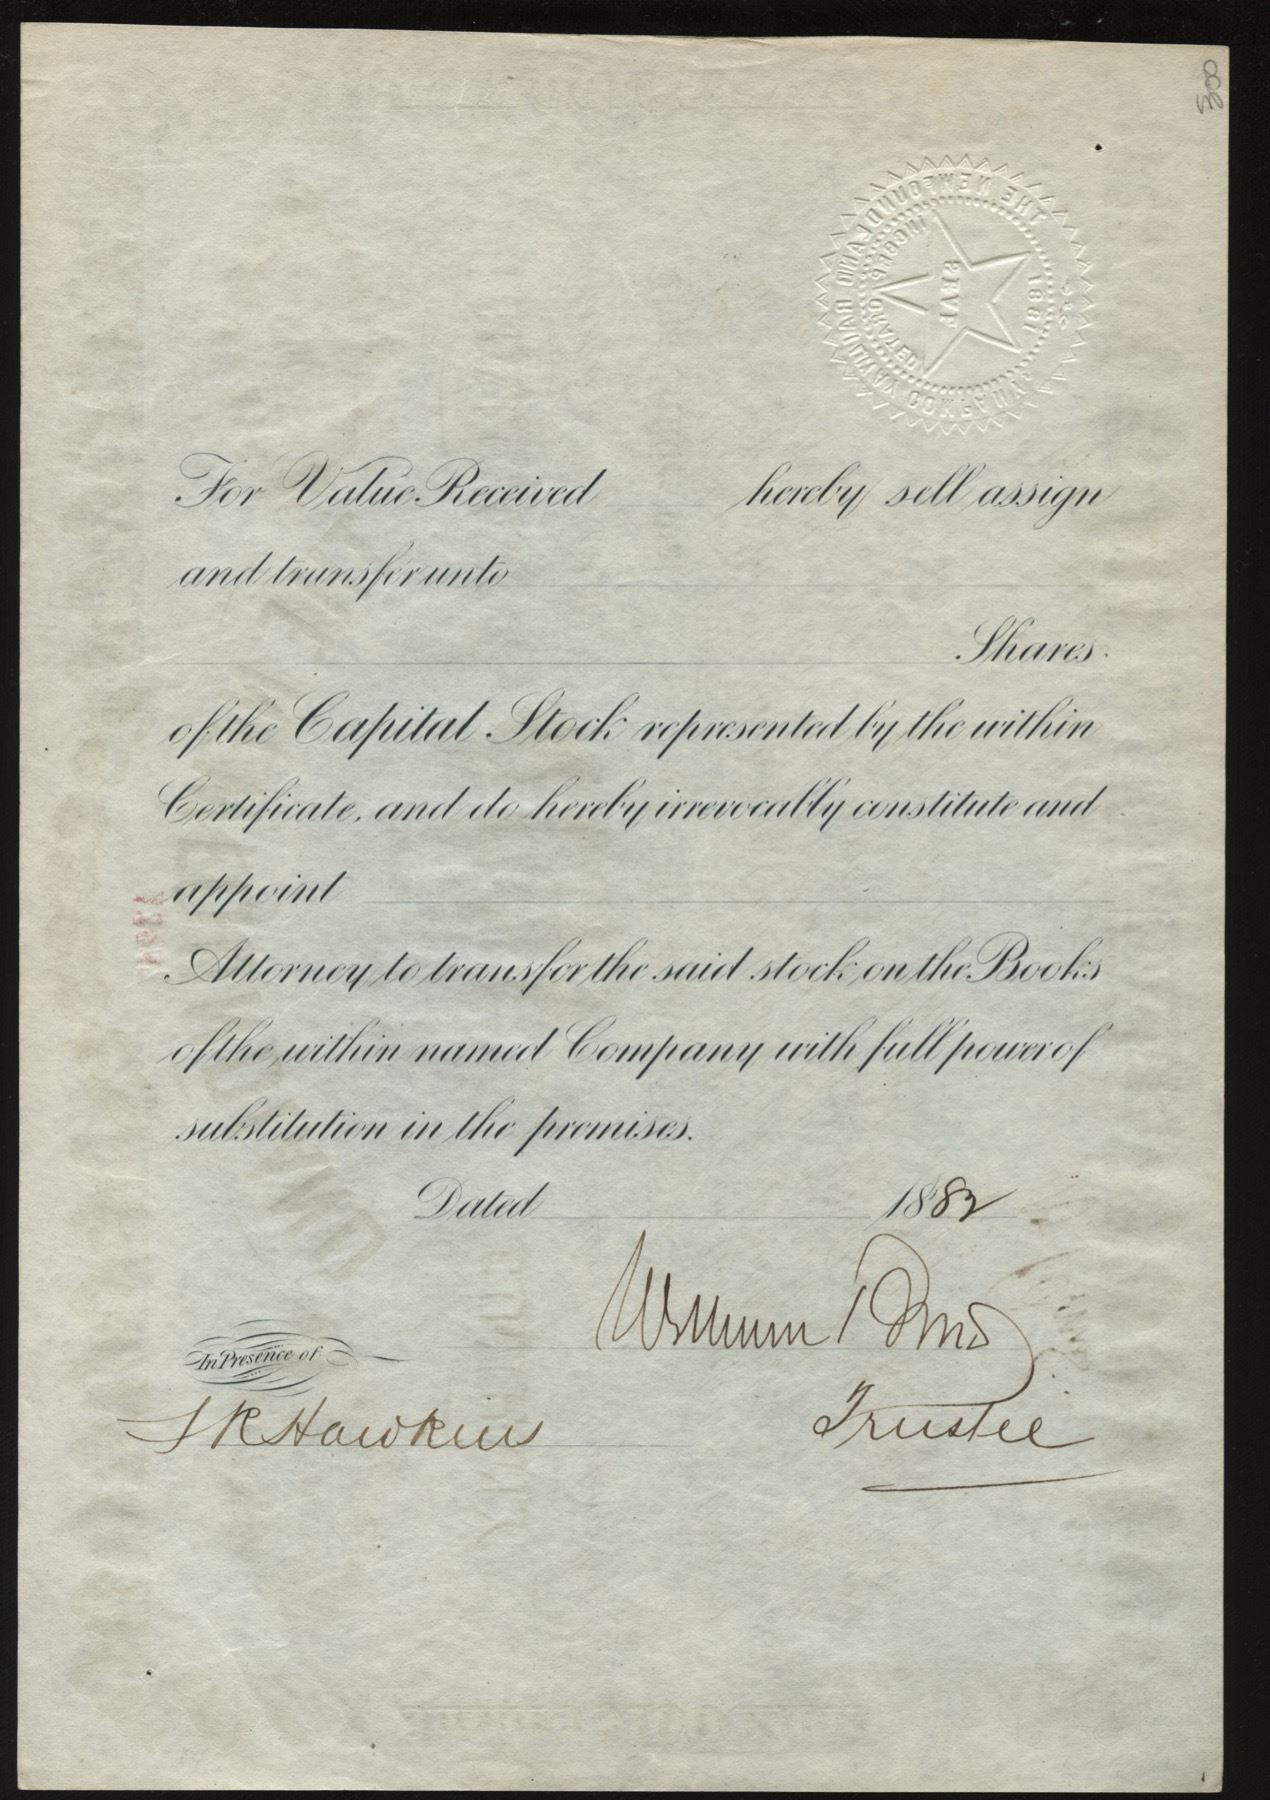 300
THE NEWFOUNDLAND RAILWAY COMPANY
INCORPORATED
SEAL
1881
For Value Received hereby sell assign
and transfer unto
Shares
of the Capital Stock represented by the within
Certificate, and do hereby irrevocably constitute and
appoint
Attorney to transfer the said stock on the Books
of the within named Company with full power of
substitution in the premises.
Dated 1882
William
In Presence of
Trustee
Hawkins